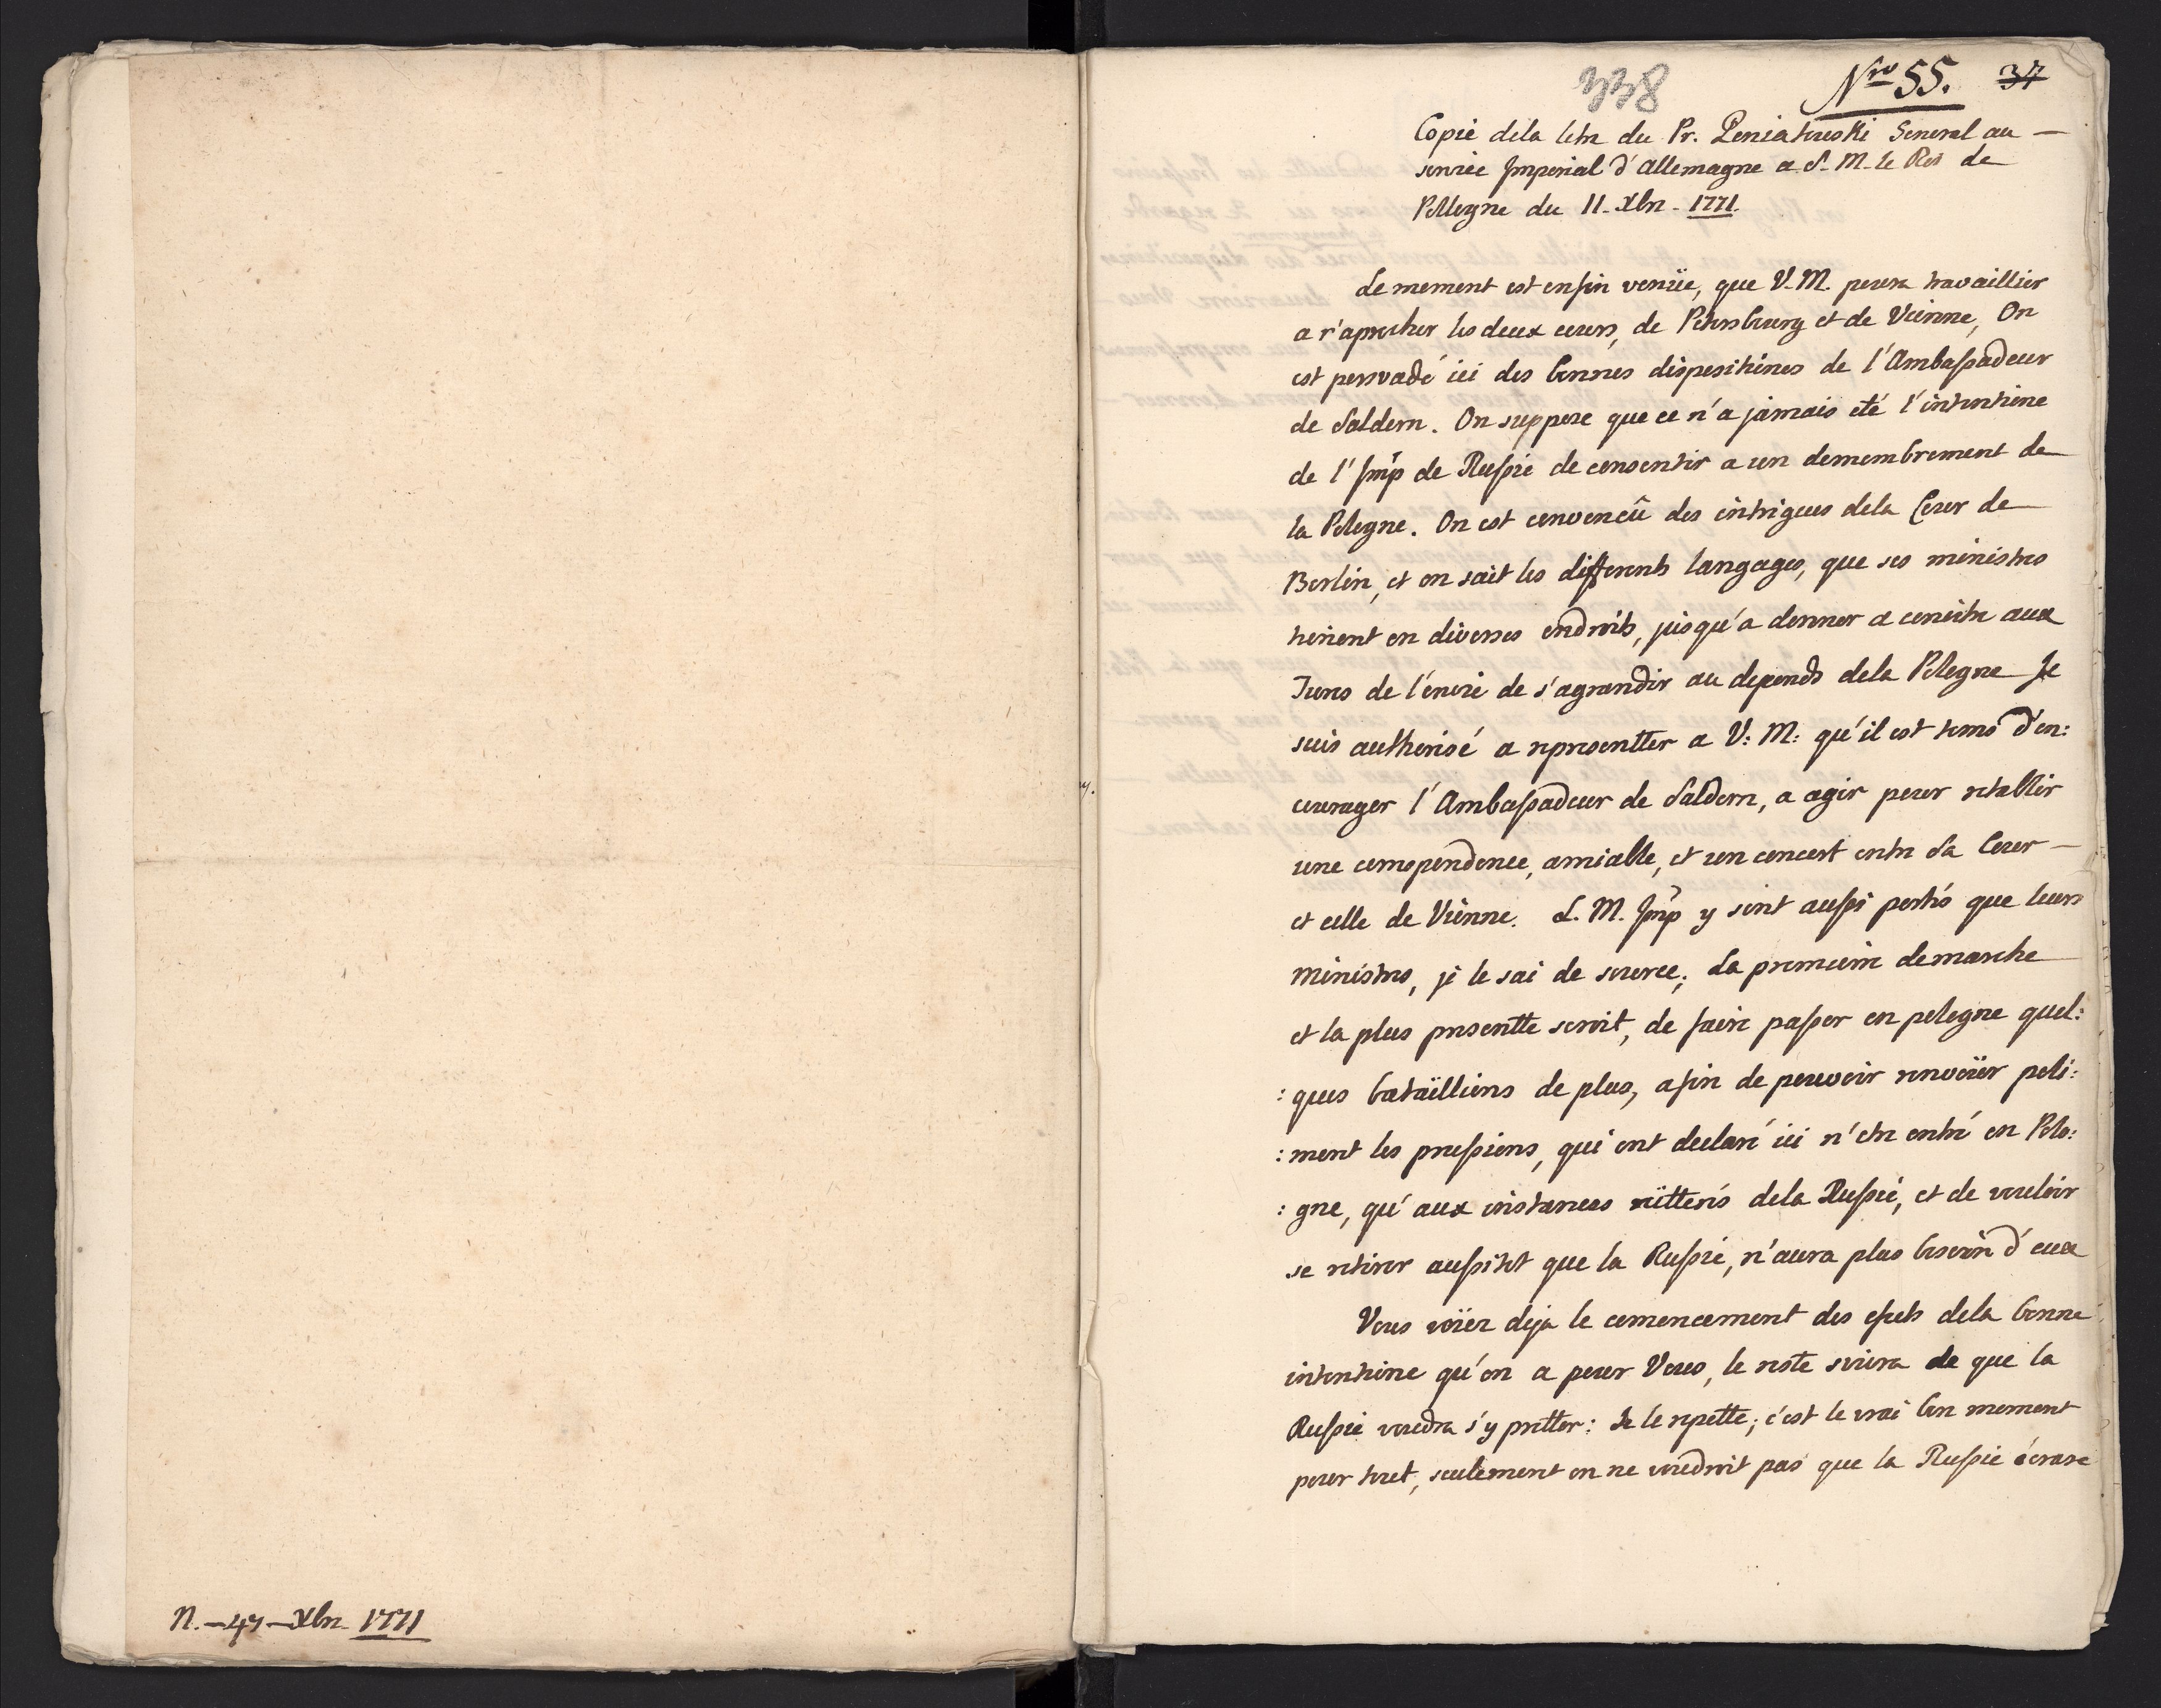 N.-47-Xbre 1771
338
Nro 55. 37
Copie déla letre du Pr. Poniatowski General au
service Imperial d'Allemagne a S. M. le Roi de
Pollogne du 11. Xbre. 1771.
Le moment est enfin venüe, que V. M. poura travaillier
a r'aprocher les deux cours, de Petersbourg et de Vienne, On
est persvadé ici des bonnes dispositiones de l'Ambassadeur
de Saldern. On suppose que ce n'a jamais eté l'intentione
de l'Imp de Russie de consentir a un demembrement de
la Pologne. On est convencû des intrigues dela Cour de
Berlin, et on sait les differents langages, que ses ministres
tienent en diverses endroits, jusqu'a donner a conoitre aux
Turcs de l'envie de s'agrandir au depends dela Pologne Je
suis authorisé a representter a V: M: qu'il est tems d'en:
courager l'Ambassadeur de Saldern, a agir pour retablir
une corespondence, amiable, et un concert entre sa Cour
et celle de Vienne. L. M. Imp y sont aussi portés que leurs
ministres, je le sai de source; La premiere demarche
et la plus presentte seroit, de faire passer en pologne quel:
:ques bataïllions de plus, afin de pouvoir renvoïer poli:
:ment les prussiens, qui ont declaré ici n'etre entré en Polo:
:gne, qu'aux instances reïtterés dela Russie, et de vouloir
se retirer aussitot que la Russie, n'aura plus besoin d'eux
Vous voïez deja le comencement des efets dela bonne
intentione qu'on a pour Vous, le reste suivra de que la
Russie voudra s'y pretter: Je le repette; c'est le vrai bon moment
pour tout, seulement on ne voudroit pas que la Russie écrase